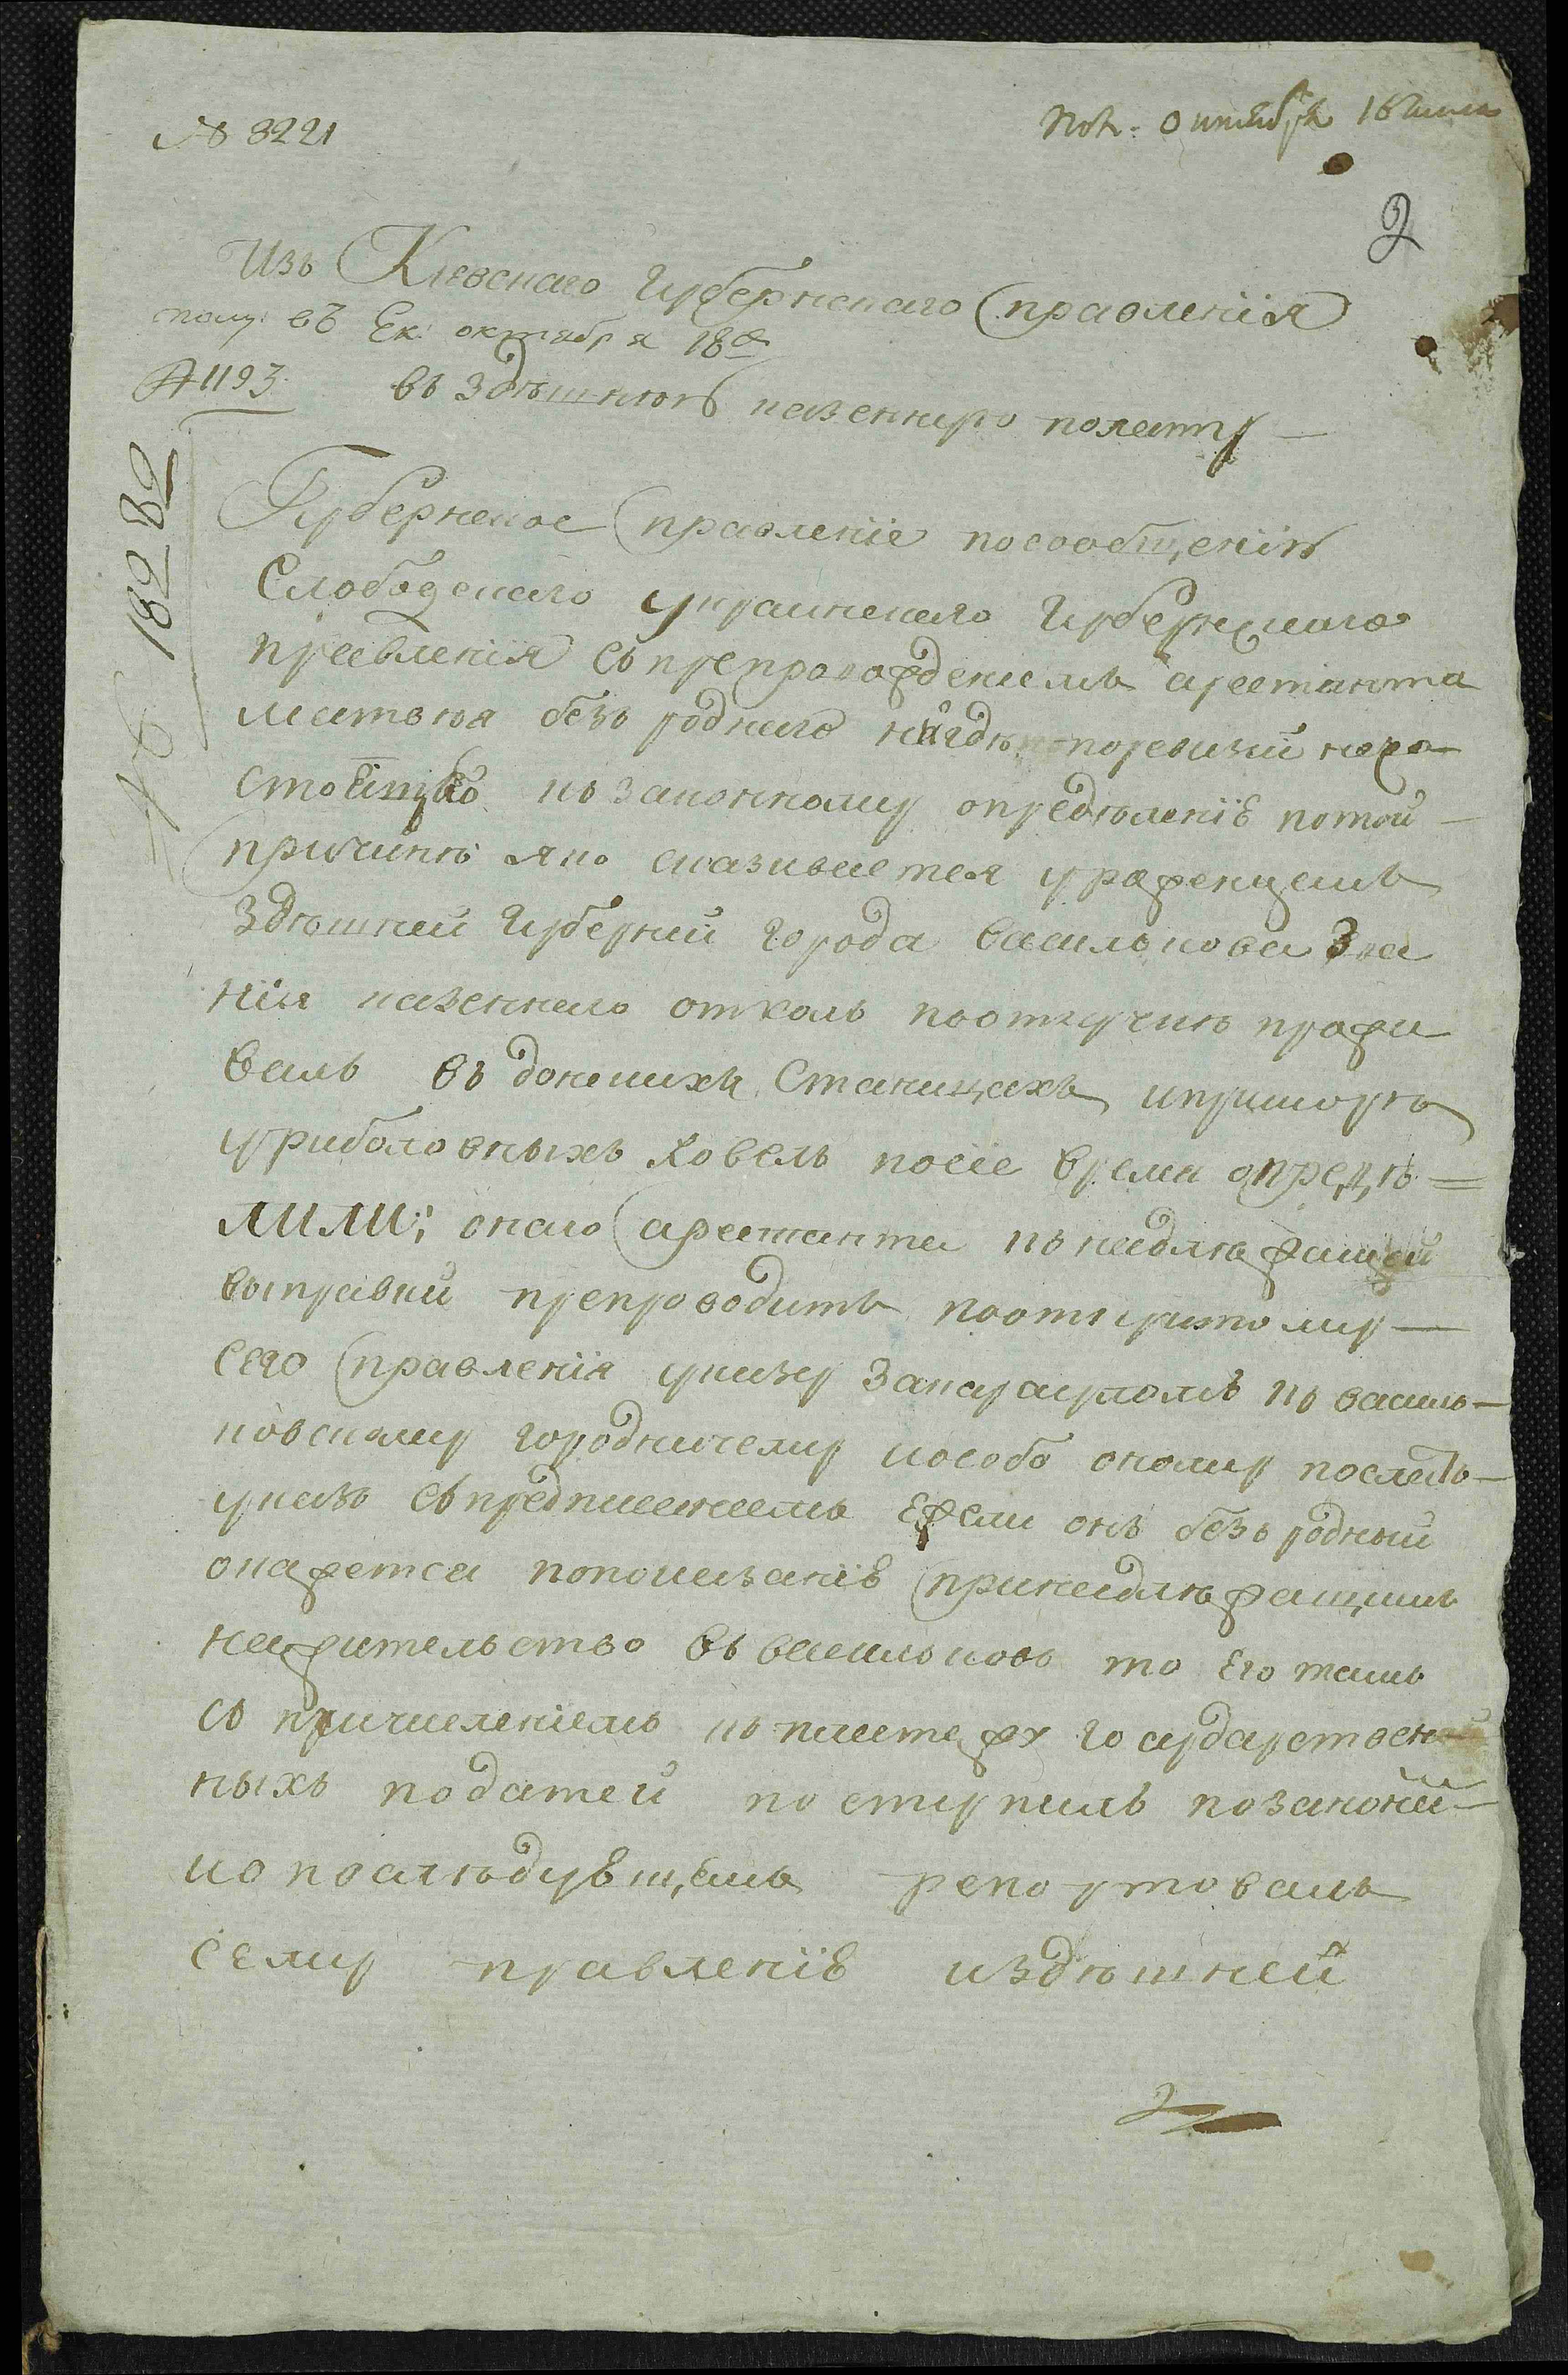 № 8221
Пол: октября 16 числа
2
Изъ Кіевскаго Губернскаго правленія
полу: въ Ек: октября 18е
№ 1193.
въ здѣшнюю казенную полату —
№ 182 82
Губернское правленіе посообщенію
Слободскаго украинскаго Губернскаго
правленія съ препровожденіемъ арестанта
матвѣя безъ роднаго нигдѣ поревизіи неза
к законному опредѣленіе потой
причинѣ яко сказивается урожденцемъ
здѣшней Губерніи города василькова зва
нія казеннаго отколь поотлучкѣ прожи
валъ въ донскихъ Станицахъ ипримори
уриболовныхъ ловель посіе время опредѣ=
лили: онаго арестанта къ надлежащей
выправки препроводить пооткритому —
сего правленія указу закарауломъ къ василь—
ковскому городничему иособо оному послать—
указъ съпредписаніемъ ежели онъ безъ родный
окажется попоказаніе принадлежащимъ
нажительство въ васильковъ то Его тамъ
съ причисленіемъ къ платежу государствен
ныхъ податей поступилъ позаконы—
ио послѣдувшемъ репортовалъ
сему правленіе издѣшней